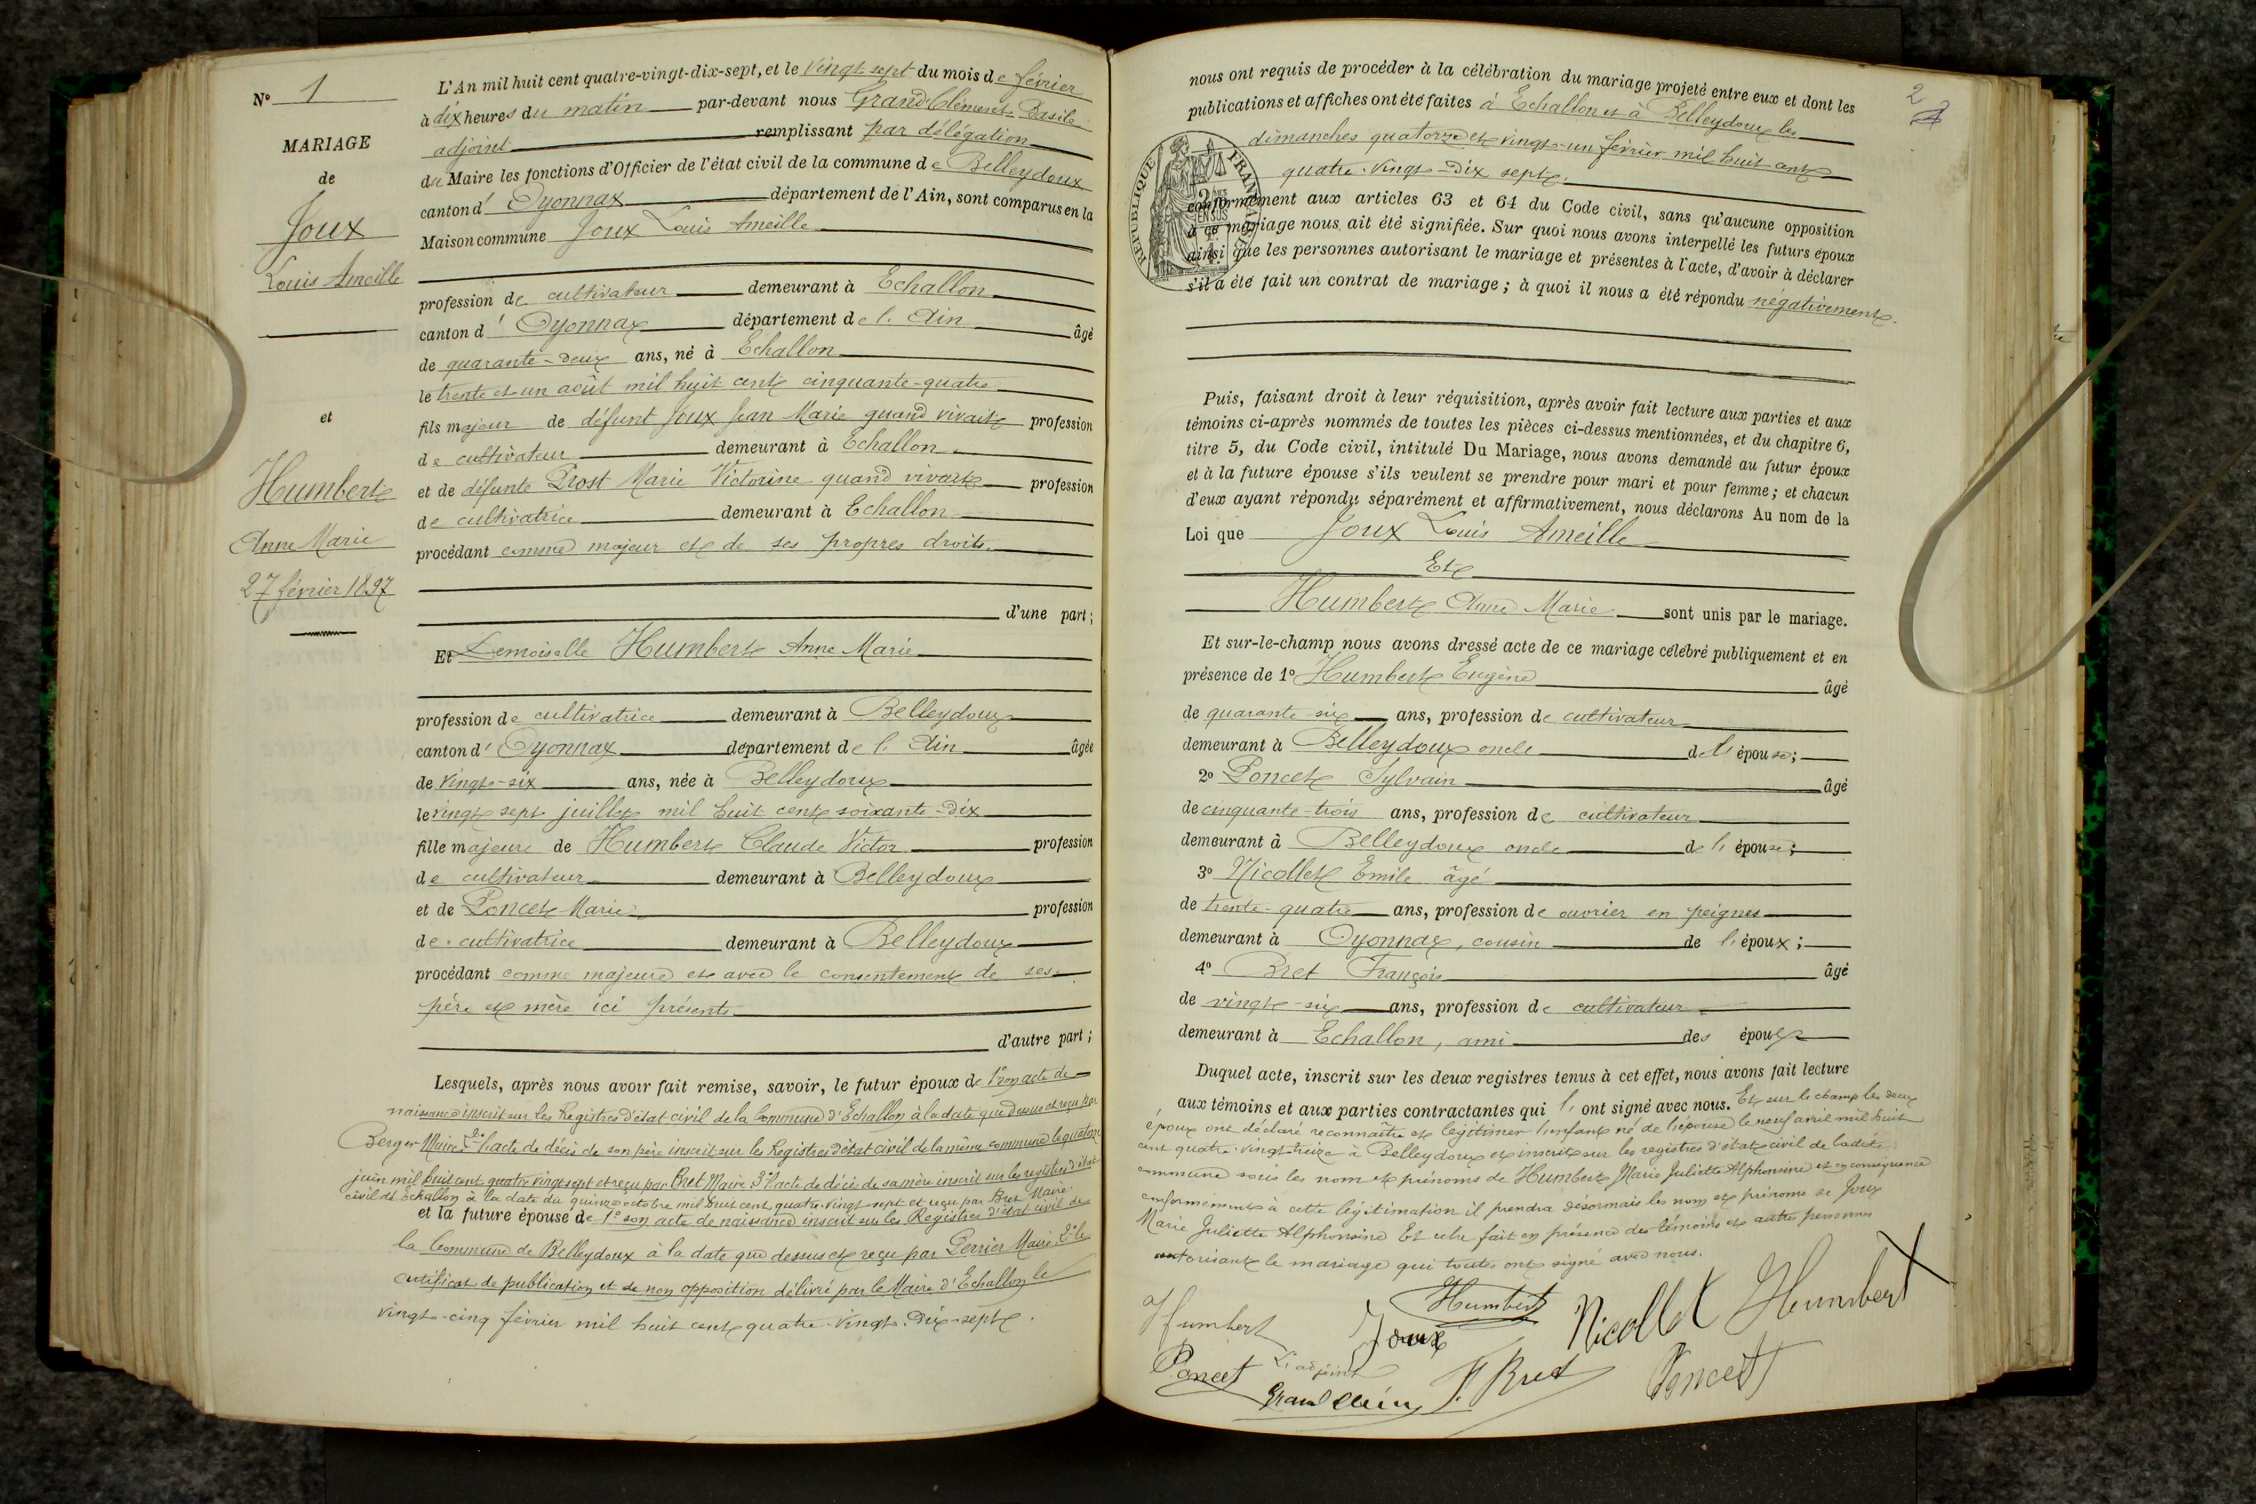 N° 1
MARIAGE
de
Joux
Louis Ameille
et
Humbert
Anne Marie
27 février 1897
L'An mil huit cent quatre-vingt-dix-sept, et le vingt sept du mois de février
à dix heures du matin par-devant nous Grand-Clément Basile
adjoint remplissant par délégation
du Maire les fonctions d'Officier de l'état civil de la commune de Belleydoux
canton d' Oyonnax département de l'Ain, sont comparus en la
Maison commune Joux Louis Ameille
profession de cultivateur demeurant à Echallon
canton d' Oyonnax département de l'Ain âgé
de quarante-deux ans, né à Echallon
le trente et un août mil huit cent cinquante-quatre
fils majeur de défunt Joux Jean Marie quand vivait profession
de cultivateur demeurant à Echallon
et de défunte Prost Marie Victorine quand vivait profession
de cultivatrice demeurant à Echallon
procédant comme majeur et de ses propres droits.
d'une part;
Et Demoiselle Humbert Anne Marie
profession de cultivatrice demeurant à Belleydoux
canton d' Oyonnax département de l'Ain âgée
de vingt-six ans, née à Belleydoux
le vingt sept juillet mil huit cent soixante-dix
fille majeure de Humbert Claude Victor profession
de cultivateur demeurant à Belleydoux
et de Poncet Marie profession
de cultivatrice demeurant à Belleydoux
procédant comme majeure et avec le consentement de ses
père et mère ici présents
d'autre part;
Lesquels, après nous avoir fait remise, savoir, le futur époux de 1° son acte de
naissance inscrit sur les Registres d'état civil de la Commune d'Echallon à la date que dessus et reçu par
Berger Maire 2° l'acte de décès de son père inscrit sur les Registres d'état civil de la même commune le quatorze
juin mil huit cent quatre vingt sept et reçu par Bret Maire 3° l'acte de décès de sa mère inscrit sur les registres d'état
civil d'Echallon à la date du quinze octobre mil huit cent quatre-vingt sept et reçu par Bret Maire
et la future épouse de 1° son acte de naissance inscrit sur les Registres d'état civil de
la Commune de Belleydoux à la date que dessus et reçu par Perrier Maire 2° le
certificat de publication et de non opposition délivré par le Maire d'Echallon le
vingt-cinq février mil huit cent quatre-vingt-dix-sept.
2
nous ont requis de procéder à la célébration du mariage projeté entre eux et dont les
publications et affiches ont été faites à Echallon et à Belleydoux les
dimanches quatorze et vingt-un février mil huit cent
quatre-vingt-dix sept.
RÉPUBLIQUE FRANÇAISE
conformément aux articles 63 et 64 du Code civil, sans qu'aucune opposition
à ce mariage nous ait été signifiée. Sur quoi nous avons interpellé les futurs époux
ainsi que les personnes autorisant le mariage et présentes à l'acte, d'avoir à déclarer
s'il a été fait un contrat de mariage; à quoi il nous a été répondu négativement.
Puis, faisant droit à leur réquisition, après avoir fait lecture aux parties et aux
témoins ci-après nommés de toutes les pièces ci-dessus mentionnées, et du chapitre 6,
titre 5, du Code civil, intitulé Du Mariage, nous avons demandé au futur époux
et à la future épouse s'ils veulent se prendre pour mari et pour femme; et chacun
d'eux ayant répondu séparément et affirmativement, nous déclarons Au nom de la
Loi que Joux Louis Ameille
Et
Humbert Anne Marie sont unis par le mariage.
Et sur-le-champ nous avons dressé acte de ce mariage célébré publiquement et en
présence de 1° Humbert Eugène âgé
de quarante-six ans, profession de cultivateur
demeurant à Belleydoux oncle de l'épouse;
2° Poncet Sylvain âgé
de cinquante-trois ans, profession de cultivateur
demeurant à Belleydoux oncle de l'épouse;
3° Nicollet Emile âgé
de trente-quatre ans, profession de ouvrier en peignes
demeurant à Oyonnax, cousin de l'époux;
4° Bret François âgé
de vingt-six ans, profession de cultivateur
demeurant à Echallon, ami des époux
Duquel acte, inscrit sur les deux registres tenus à cet effet, nous avons fait lecture
aux témoins et aux parties contractantes qui ont signé avec nous. Et sur le champ les deux
époux ont déclaré reconnaître et légitimer l'enfant né de l'épouse le neuf avril mil huit
cent quatre-vingt-treize à Belleydoux et inscrit sur les registres d'état civil de ladite
commune sous les nom et prénoms de Humbert Marie Juliette Alphonsine et en conséquence
conformément à cette légitimation il prendra désormais les nom et prénoms de Joux
Marie Juliette Alphonsine Et cela fait en présence des témoins et autres personnes
autorisant le mariage qui toutes ont signé avec nous.
Humbert Joux Humbert Nicollet Humbert
Poncet L'adjoint
Grand Clém F. Bret Poncet